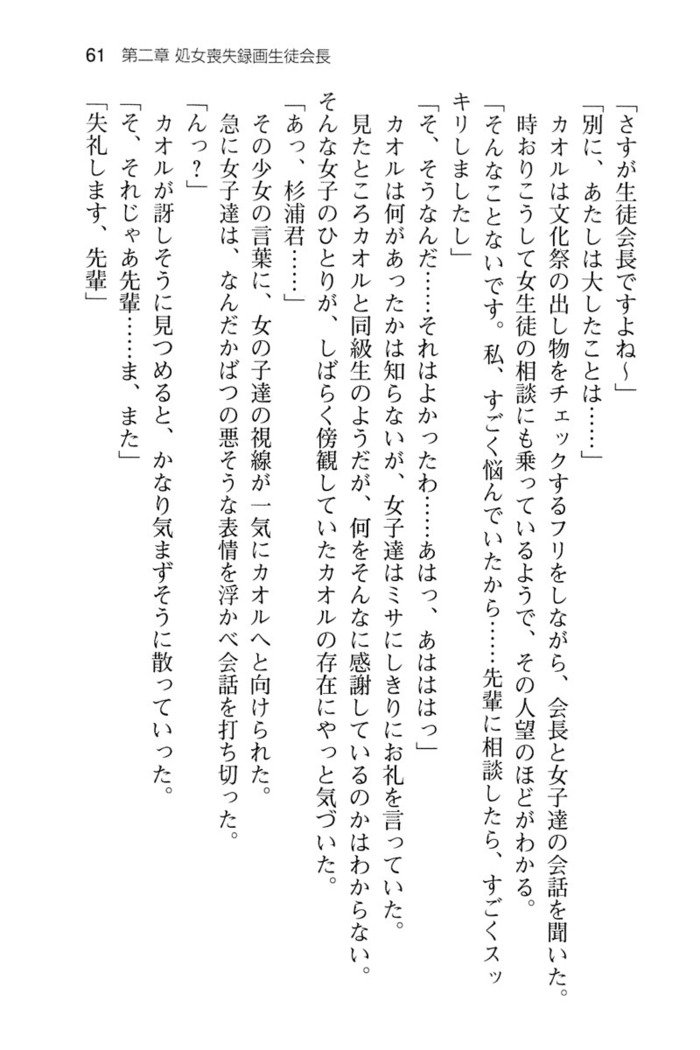 61　第二章 処女喪失録画生徒会長
「さすが生徒会長ですよね～」
「別に、あたしは大したことは……」
　カオルは文化祭の出し物をチェックするフリをしながら、会長と女子達の会話を聞いた。
　時おりこうして女生徒の相談にも乗っているようで、その人望のほどがわかる。
「そんなことないです。私、すごく悩んでいたから……先輩に相談したら、すごくスッ
キリしましたし」
「そ、そうなんだ……それはよかったわ……あはっ、あはははっ」
　カオルは何があったかは知らないが、女子達はミサにしきりにお礼を言っていた。
　見たところカオルと同級生のようだが、何をそんなに感謝しているのかはわからない。
そんな女子のひとりが、しばらく傍観していたカオルの存在にやっと気づいた。
「あっ、杉浦君……」
　その少女の言葉に、女の子達の視線が一気にカオルへと向けられた。
　急に女子達は、なんだかばつの悪そうな表情を浮かべ会話を打ち切った。
「んっ？」
　カオルが訝しそうに見つめると、かなり気まずそうに散っていった。
「そ、それじゃあ先輩……ま、また」
「失礼します、先輩」